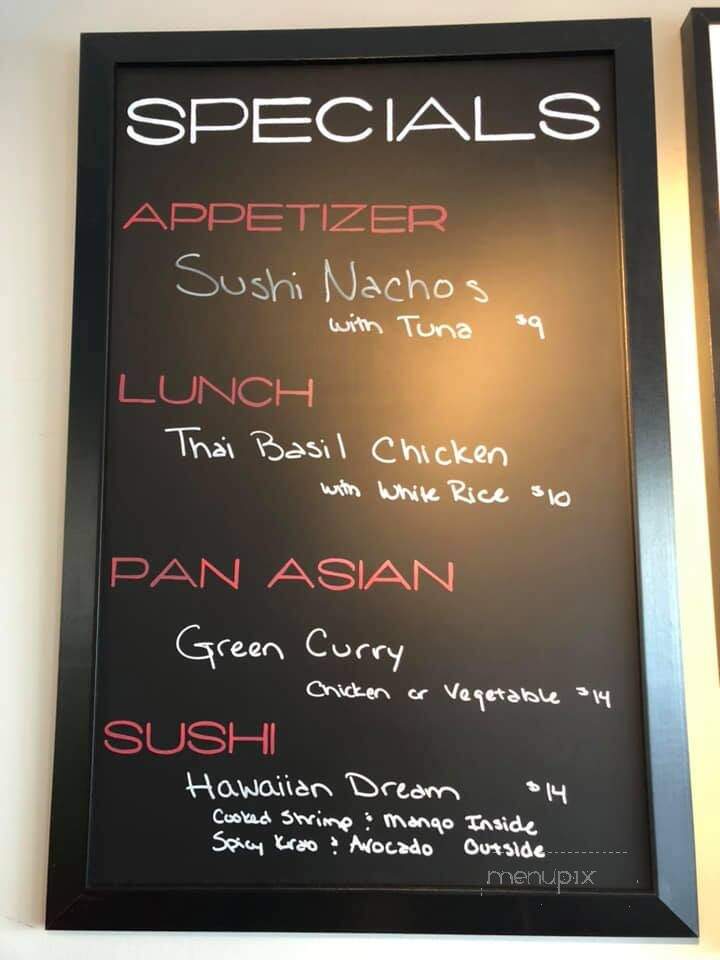 SPECIALS
APPETIZER
Sushi Nachos
with Tuna $9
LUNCH
Thai Basil Chicken
with White Rice $10
PAN ASIAN
Green Curry
Chicken or Vegetable $14
SUSHI
Hawaiian Dream $14
Cooked Shrimp & Mango Inside
Spicy Krab & Avocado Outside
menupix